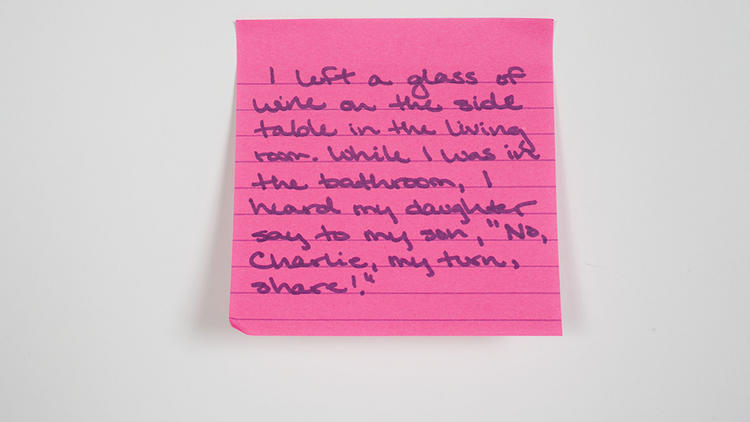 I left a glass of
wine on the side
table in the living
room. While I was in
the bathroom, I
heard my daughter
say to my son, "No,
Charlie, my turn,
share!"